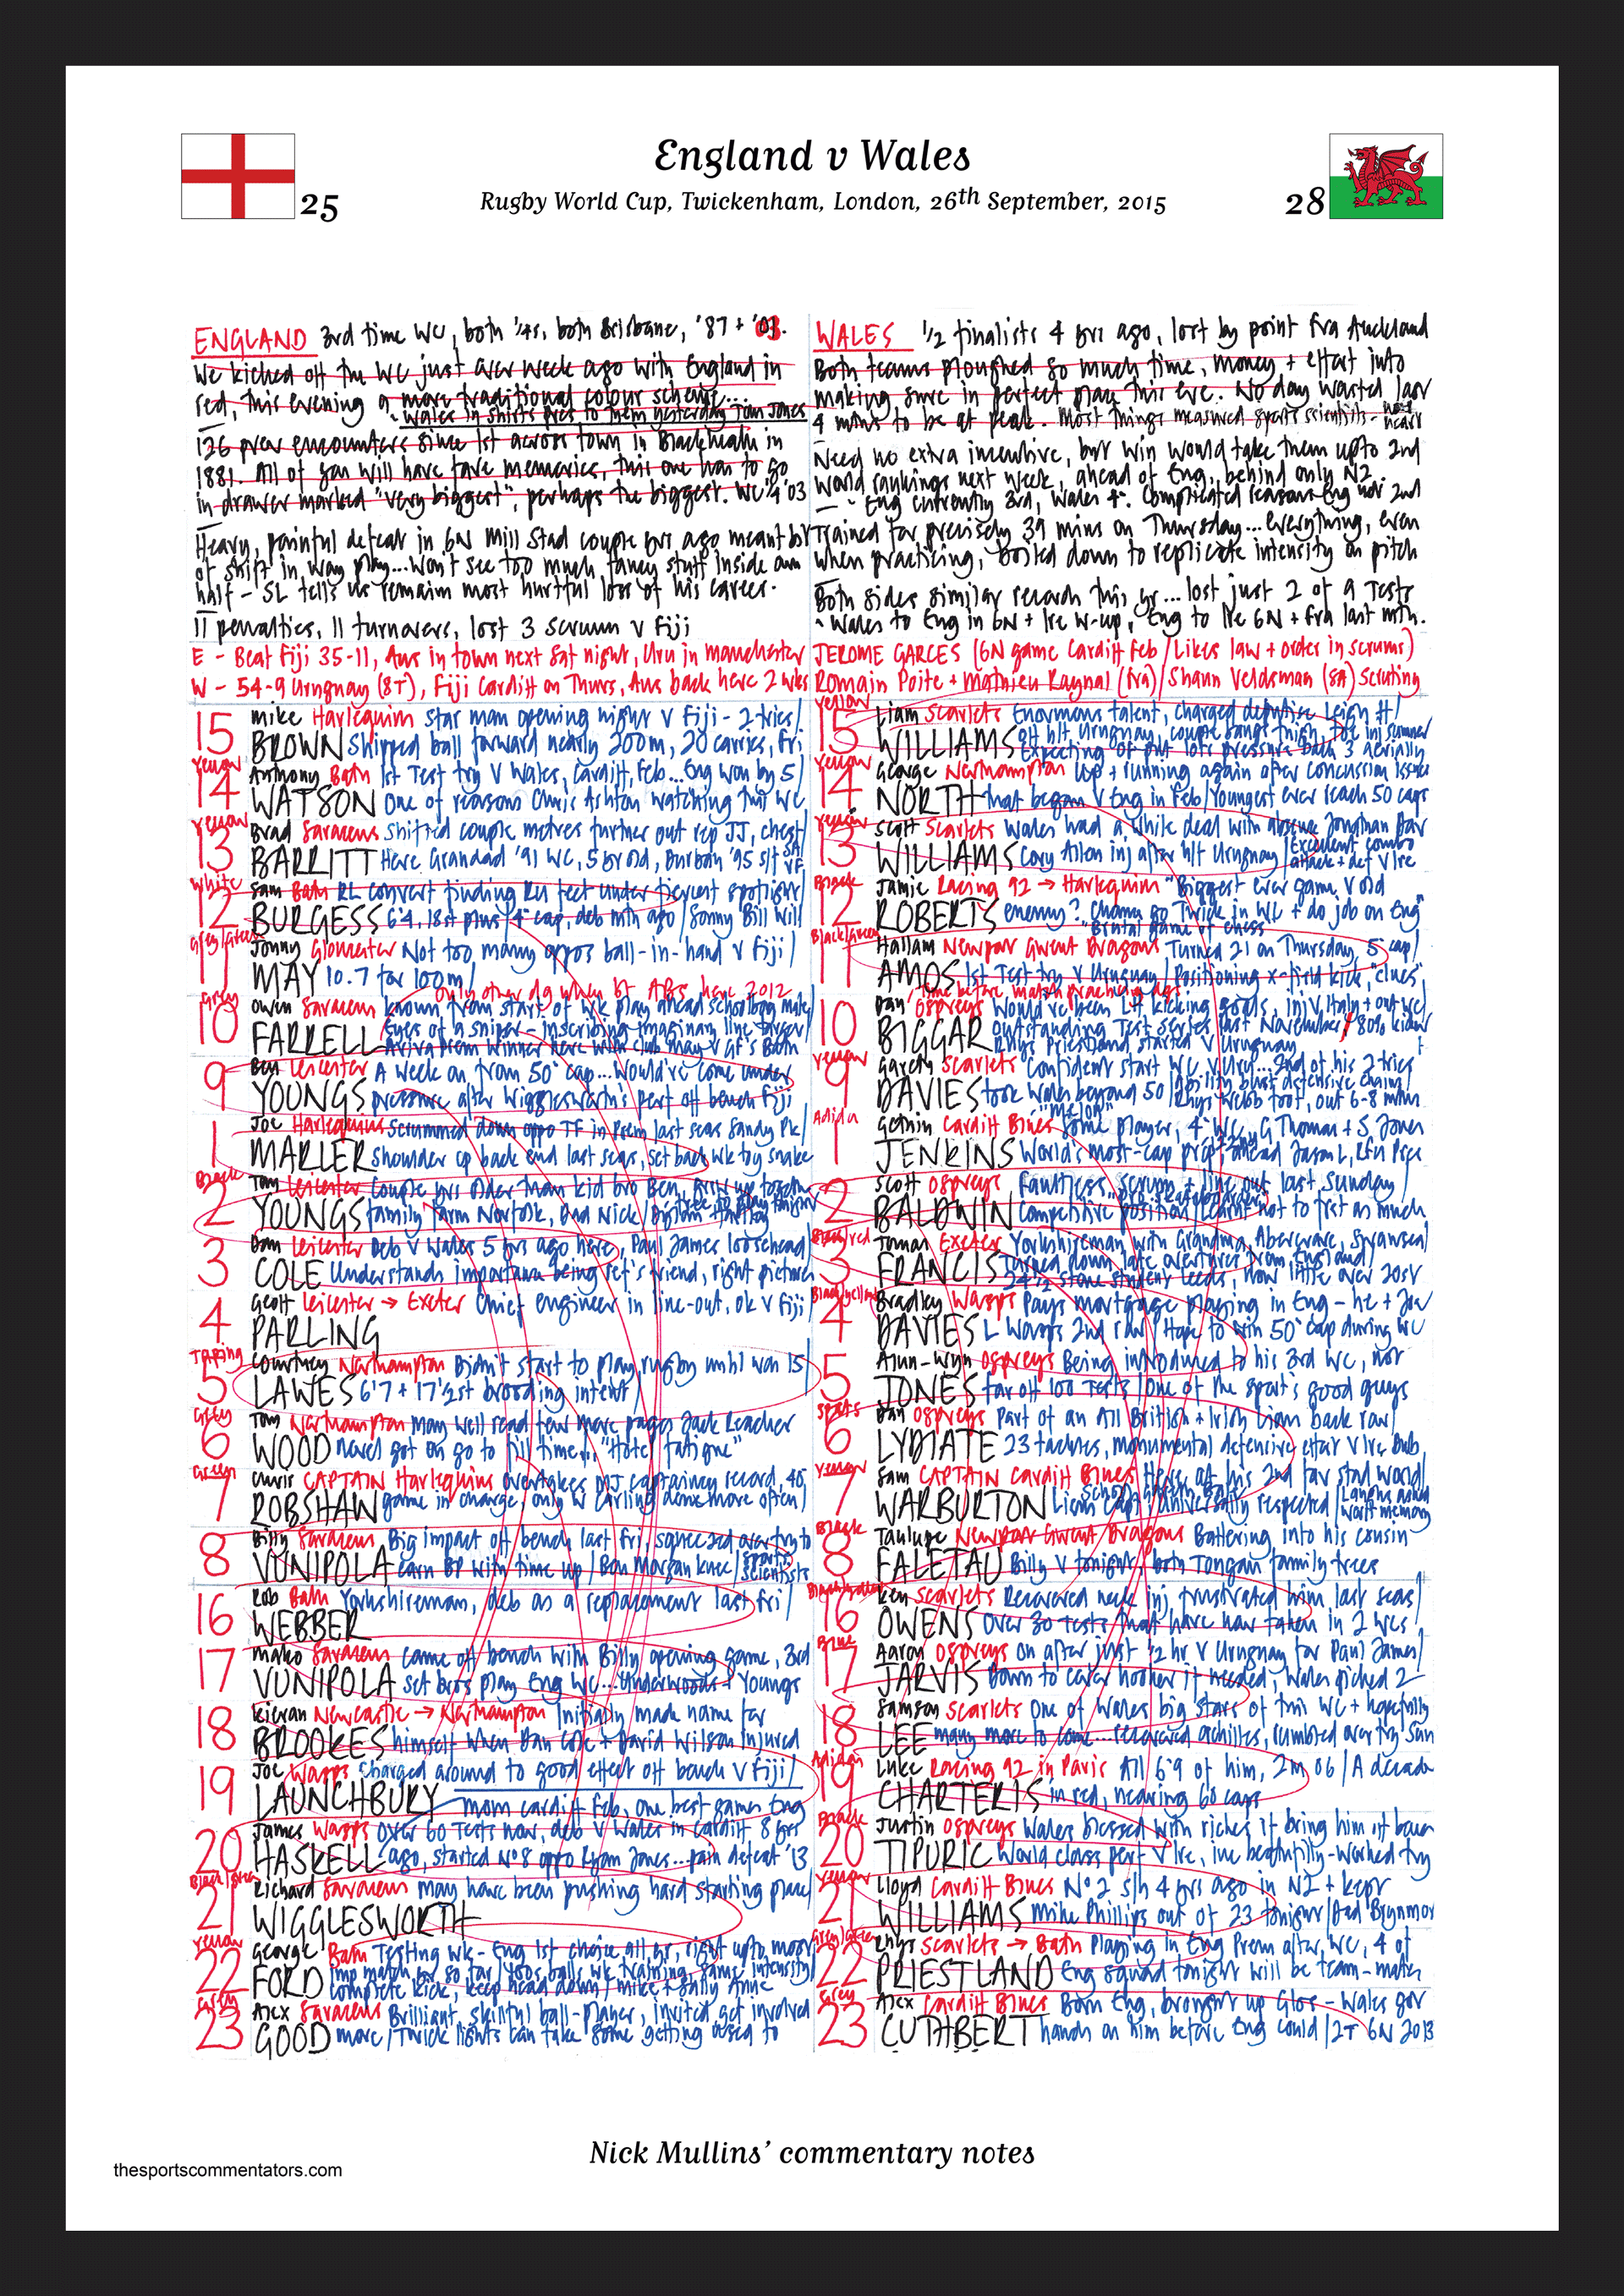 England v Wales
25
Rugby World Cup, Twickenham, London, 26th September, 2015
28
ENGLAND 3rd time WC, both 1/4s, both Brisbane, '87 + '03.
We kicked off the WC just over week ago with England in
red, this evening a more traditional colour scheme...
- Wales in shirts pres to them yesterday Tom Jones
126 prev encounters since 1st across town in Blackheath in
1881. All of you will have fave memories, this one has to go
in drawer marked "very biggest", perhaps the biggest. WC 1/4 '03
Heavy, painful defeat in 6N Mill Stad couple yrs ago meant bit
of shift in way play...Won't see too much fancy stuff inside own
half - SL tells us remain most hurtful loss of his career.
11 penalties, 11 turnovers, lost 3 scrum v Fiji
E - Beat Fiji 35-11, Aus in town next Sat night, Uru in Manchester
W - 54-9 Uruguay (8T), Fiji Cardiff on Thurs, Aus back here 2 wks
WALES 1/2 finalists 4 yrs ago, lost by point Fra Auckland
Both teams ploughed so much time, money + effort into
making sure in perfect place this eve. No day wasted last
4 to be at peak. Most things measured sports scientists -
Need no extra incentive, but win would take them upto 2nd
World rankings next week, ahead of Eng, behind only NZ.
- Eng currently 3rd, Wales 4th. Complicated reasons Eng not 2nd
Trained for precisely 39 mins on Thursday...everything, even
when practising, boiled down to replicate intensity on pitch
Both sides similar records this yr...lost just 2 of 9 Tests
- Wales to Eng in 6N + Ire w-up, Eng to Ire 6N + Fra last mth.
JEROME GARCES (6N game Cardiff Feb / Likes law + order in scrums)
Romain Poite + Mathieu Raynal (Fra) / Shaun Veldsman (SA) Scruting
15 Mike Harlequins Star man opening night v Fiji - 2 tries /
BROWN Shipped ball forward nearly 200m, 20 carries, Fri
Yellow
14 Anthony Bath 1st Test try v Wales, Cardiff, Feb...Eng won by 5 /
WATSON One of reasons Chris Ashton watching this WC
Yellow
13 Brad Saracens Shifted couple metres further out rep JJ, chest /
BARRITT Here Grandad '91 WC, 5 yr old, Durban '95 s/f
White
12 Sam Bath RL convert finding RU feet under fiercest spotlight /
BURGESS 6'4, 18st plus / 4th cap, deb mth ago / Sonny Bill Will
Grey/Green
11 Jonny Gloucester Not too many oppos ball-in-hand v Fiji /
MAY 10.7 for 100m /
Only other dg when bt ABs here 2012
Grey
10 Owen Saracens Known from start of wk play ahead schoolboy mate
FARRELL Eyes of a sniper - inscribing imaginary line target
Aviva Prem winner here with club May v GF's Bath
9 Ben Leicester A week on from 50th cap...Would've come under
YOUNGS pressure after Wigglesworth's perf off bench Fiji
1 Joe Harlequins Scrummed down oppo TF in Prem last seas Sandy Pk /
MARLER Shoulder op back end last seas, set back wk by snake
Black
2 Tom Leicester Couple yrs older than kid bro Ben, grew up together
YOUNGS family farm Norfolk, Dad Nick /
3 Dan Leicester Deb v Wales 5 yrs ago here, Paul James loosehead /
COLE Understands importance being ref's friend, right pictures
4 Geoff Leicester → Exeter Chief engineer in line-out, ok v Fiji /
PARLING
Taping
5 Courtney Northampton Didn't start to play rugby until was 15 /
LAWES 6'7 + 17 1/2 st brooding intent /
Grey
6 Tom Northampton May well read few more pages Jack Reacher
WOOD novel got on go to fill time... "Hotel fatigue"
Green
7 Chris CAPTAIN Harlequins Overtakes MJ captaincy record, 40th
ROBSHAW game in charge / only W Carling done more often /
8 Billy Saracens Big impact off bench last Fri, squeezed over try to
VUNIPOLA earn BP with time up / Ben Morgan knee / Sports scientists
16 Rob Bath Yorkshireman, deb as a replacement last Fri /
WEBBER
17 Mako Saracens Came off bench with Billy opening game, 3rd
VUNIPOLA set bros play Eng WC...Underwoods + Youngs
18 Kieran Newcastle → Northampton Initially made name for
BROOKES himself when Dan Cole + David Wilson injured
19 Joe Wasps Charged around to good effect off bench v Fiji /
LAUNCHBURY MOM Cardiff Feb, one best games Eng
20 James Wasps Over 60 Tests now, deb v Wales in Cardiff 8 yrs
HASKELL ago, started No 8 oppo Ryan Jones...pain defeat '13
Black/Green
21 Richard Saracens May have been pushing hard starting place /
WIGGLESWORTH
Yellow
22 George Bath Testing wk - Eng 1st choice all yr, right upto most
FORD imp match yr so far / 450s balls wk training, same intensity /
complete kick, keep head down / Mike + Sally Anne
Green
23 Alex Saracens Brilliant, skilful ball-player, invited get involved
GOOD more / Twick lights can take some getting used to
Yellow
15 Liam Scarlets Enormous talent, charged deputise Leigh H /
WILLIAMS off h/t Uruguay, couple bangs thigh, toe inj summer
Expecting Of put lots pressure back 3 aerially
Yellow
14 George Northampton Up + running again after concussion issues
NORTH that began v Eng in Feb / Youngest ever reach 50 caps
Yellow
13 Scott Scarlets Wales had a while deal with absence Jonathan Dav
WILLIAMS Cory Allen inj after h/t Uruguay / Excellent combo attack + def v Ire
Black
12 Jamie Racing 92 → Harlequins "Biggest ever game v old
ROBERTS enemy? Chance go Twick in WC + do job on Eng"
"Brutal game of chess"
Black/Green
11 Hallam Newport Gwent Dragons Turned 21 on Thursday, 5th cap /
AMOS 1st Test try v Uruguay / Positioning x-field kick, "clues"
Time before match practising dgs.
10 Dan Ospreys Would've been L H kicking goals, inj v Italy + out WC /
BIGGAR Outstanding Test series last November / 80% kicker
Rhys Priestland started v Uruguay
Yellow
9 Gareth Scarlets Confident start WC v Uru...2nd of his 2 tries
DAVIES took Wales beyond 50 / Ability blast defensive chain /
Rhys Webb foot, out 6-8 mths
Adidas
1 Gethin Cardiff Blues "Melon" Some player, 4th WC, G Thomas + S Jones
JENKINS World's most-cap prop, ahead Jason L,
2 Scott Ospreys Faultless scrum + line-out last Sunday /
BALDWIN Competitive position / Learnt not to fret as much
Black/red
3 Tomas Exeter Yorkshireman with Grandma, Abercrave, Swansea /
FRANCIS Turned down late overtures from England /
24 1/2 stone student Leeds, now little over 20st
Black/yellow
4 Bradley Wasps Pays mortgage playing in Eng - he + Joe
DAVIES L Wasps 2nd row / Hope to win 50th cap during WC
5 Alun-Wyn Ospreys Being introduced to his 3rd WC, not
JONES far off 100 Tests / One of the sport's good guys
6 Dan Ospreys Part of an All British + Irish Lions back row /
LYDIATE 23 tackles, monumental defensive effort v Ire Dub
Yellow
7 Sam CAPTAIN Cardiff Blues Here at his 2nd fav stad world /
WARBURTON Lions capt, universally respected /
Black
8 Taulupe Newport Gwent Dragons Battering into his cousin
FALETAU Billy V tonight, both Tongan family trees
16 Ken Scarlets Recovered neck inj frustrated him last seas /
OWENS Over 30 Tests that have now taken in 2 WCs
Blue
17 Aaron Ospreys On after just 1/2 hr v Uruguay for Paul James /
JARVIS Down to cover hooker if needed, Wales picked 2
18 Samson Scarlets One of Wales big stars of this WC + hopefully
LEE many more to come...recovered achilles, rumbled over try Sun
Adidas
19 Luke Racing 92 in Paris All 6'9 of him, 2m 06 / A decade
CHARTERIS in red, nearing 60 caps
Black
20 Justin Ospreys Wales blessed with riches if bring him off bench
TIPURIC World class perf v Ire, inc beautifully-worked try
Yellow
21 Lloyd Cardiff Blues No 2 s/h 4 yrs ago in NZ + kept
WILLIAMS Mike Phillips out of 23 tonight / Dad Brynmor
22 Rhys Scarlets → Bath Playing in Eng Prem after WC, 4 of
PRIESTLAND Eng squad tonight will be team-mates
Grey
23 Alex Cardiff Blues Born Eng, brought up Glos - Wales got
CUTHBERT hands on him before Eng could / 2T 6N 2013
Nick Mullins' commentary notes
thesportscommentators.com